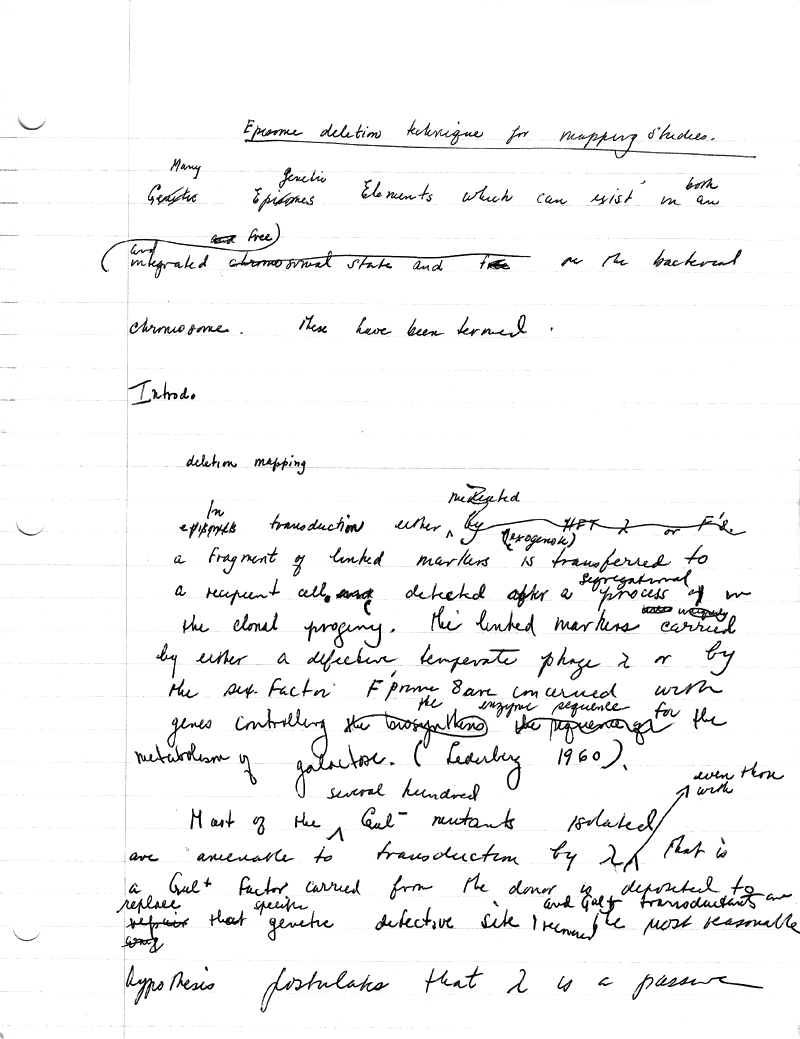 Episome deletion technique for mapping studies.
Many genetic both
Genetic Episomes Elements which can exist in an
and free)
(and
integrated chromosomal state and free on the bacterial
chromosome. These have been termed .
Introd.
deletion mapping
mediated
In
episomes transduction either ^ by HFT λ or F's.
(exogenote)
a fragment of linked markers is transferred to
segregational
a recipient cell. and detected after a process of in
the clonal progeny. The linked markers carried
by either a defective temperate phage λ or by
the sex factor F prime 8 are concerned with
the enzyme sequence
genes controlling the biosynthesis the sequence of for the
metabolism of galactose. (Lederberg 1960).
even those
with
several hundred
Most of the ^ Gal⁻ mutants isolated
are amenable to transduction by λ ^ that is
a Gal⁺ factor carried from the donor is deposited to
replace specific and Gal⁺ transductants are
repair that genetic defective site recovered The most reasonable
hypothesis postulates that λ is a passive